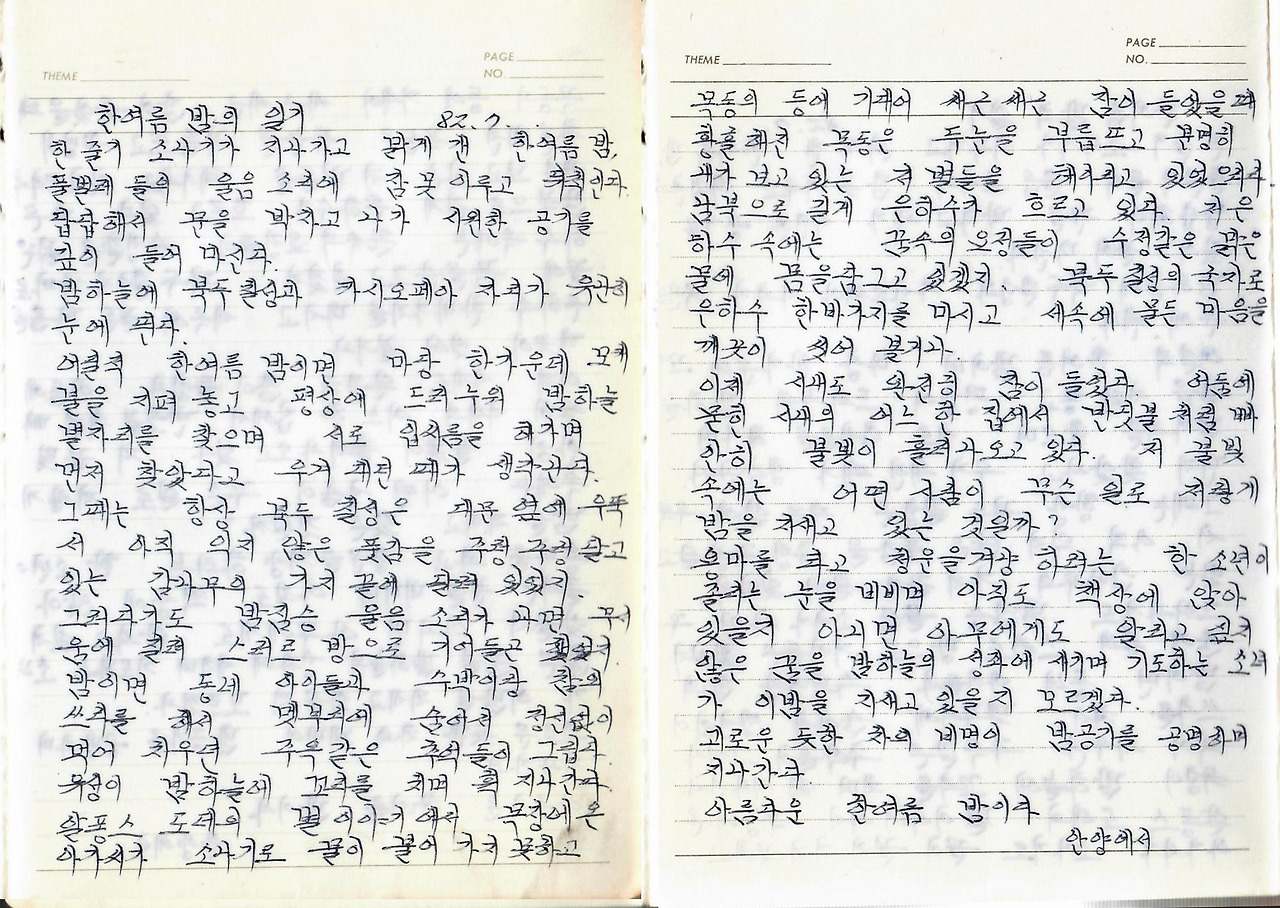 THEME
PAGE
NO.
한여름 밤의 일기 82. 7. .
한 줄기 소나기가 지나가고 맑게 갠 한여름 밤,
풀벌레 들의 울음 소리에 잠 못 이루고 뒤척인다.
답답해서 문을 박차고 나가 시원한 공기를
깊이 들어 마신다.
밤하늘에 북두칠성과 카시오페아 자리가 유난히
눈에 띈다.
어릴적 한여름 밤이면 마당 한가운데 모깃
불을 지펴 놓고 평상에 드러누워 밤하늘
별자리를 찾으며 서로 입씨름을 하가며
먼저 찾았다고 우겨 대던 때가 생각난다.
그때는 항상 북두 칠성은 대문 앞에 우뚝
서 아직 익지 않은 풋감을 주렁 주렁 달고
있는 감나무의 가지 끝에 달려 있었지.
그러다가도 밤짐승 울음 소리가 나면 무서
움에 질려 스르르 방으로 기어들곤 했었지.
밤이면 동네 아이들과 수박이랑 참외
쓰리를 해서 뗏부리에 숨어서 정신없이
먹어 치우던 주옥같은 추억들이 그립다.
유성이 밤하늘에 꼬리를 치며 획 지나간다.
알퐁스 도데의 별 이야기에서 목장에 온
아가씨가 소나기로 물이 불어 가지 못하고
THEME
PAGE
NO.
목동의 등에 기대어 새근새근 잠이 들었을 때
황홀해진 목동은 두눈을 부릅뜨고 분명히
내가 보고 있는 저 별들을 헤아리고 있었으리라
남북으로 길게 은하수가 흐르고 있다. 저 은
하수 속에는 꿈속의 요정들이 수정같은 맑은
물에 몸을 담그고 있겠지. 북두칠성의 국자로
은하수 한바가지를 마시고 세속에 물든 마음을
깨끗이 씻어 볼거나.
이제 시내도 완전히 잠이 들었다. 어둠에
묻힌 시내의 어느 한 집에서 반딧불 처럼 빠
안히 불빛이 흘러나오고 있다. 저 불빛
속에는 어떤 사람이 무슨 일로 저렇게
밤을 지새고 있는 것일까?
요마를 타고 청운을 겨냥 하려는 한 소년이
졸리는 눈을 비비며 아직도 책상에 앉아
있을지 아니면 아무에게도 알리고 싶지
않은 꿈을 밤하늘의 성좌에 새기며 기도하는 소녀
가 이밤을 지새고 있을 지 모르겠다.
괴로운 듯한 차의 비명이 밤공기를 공명하며
지나간다.
아름다운 한여름 밤이다
안양에서